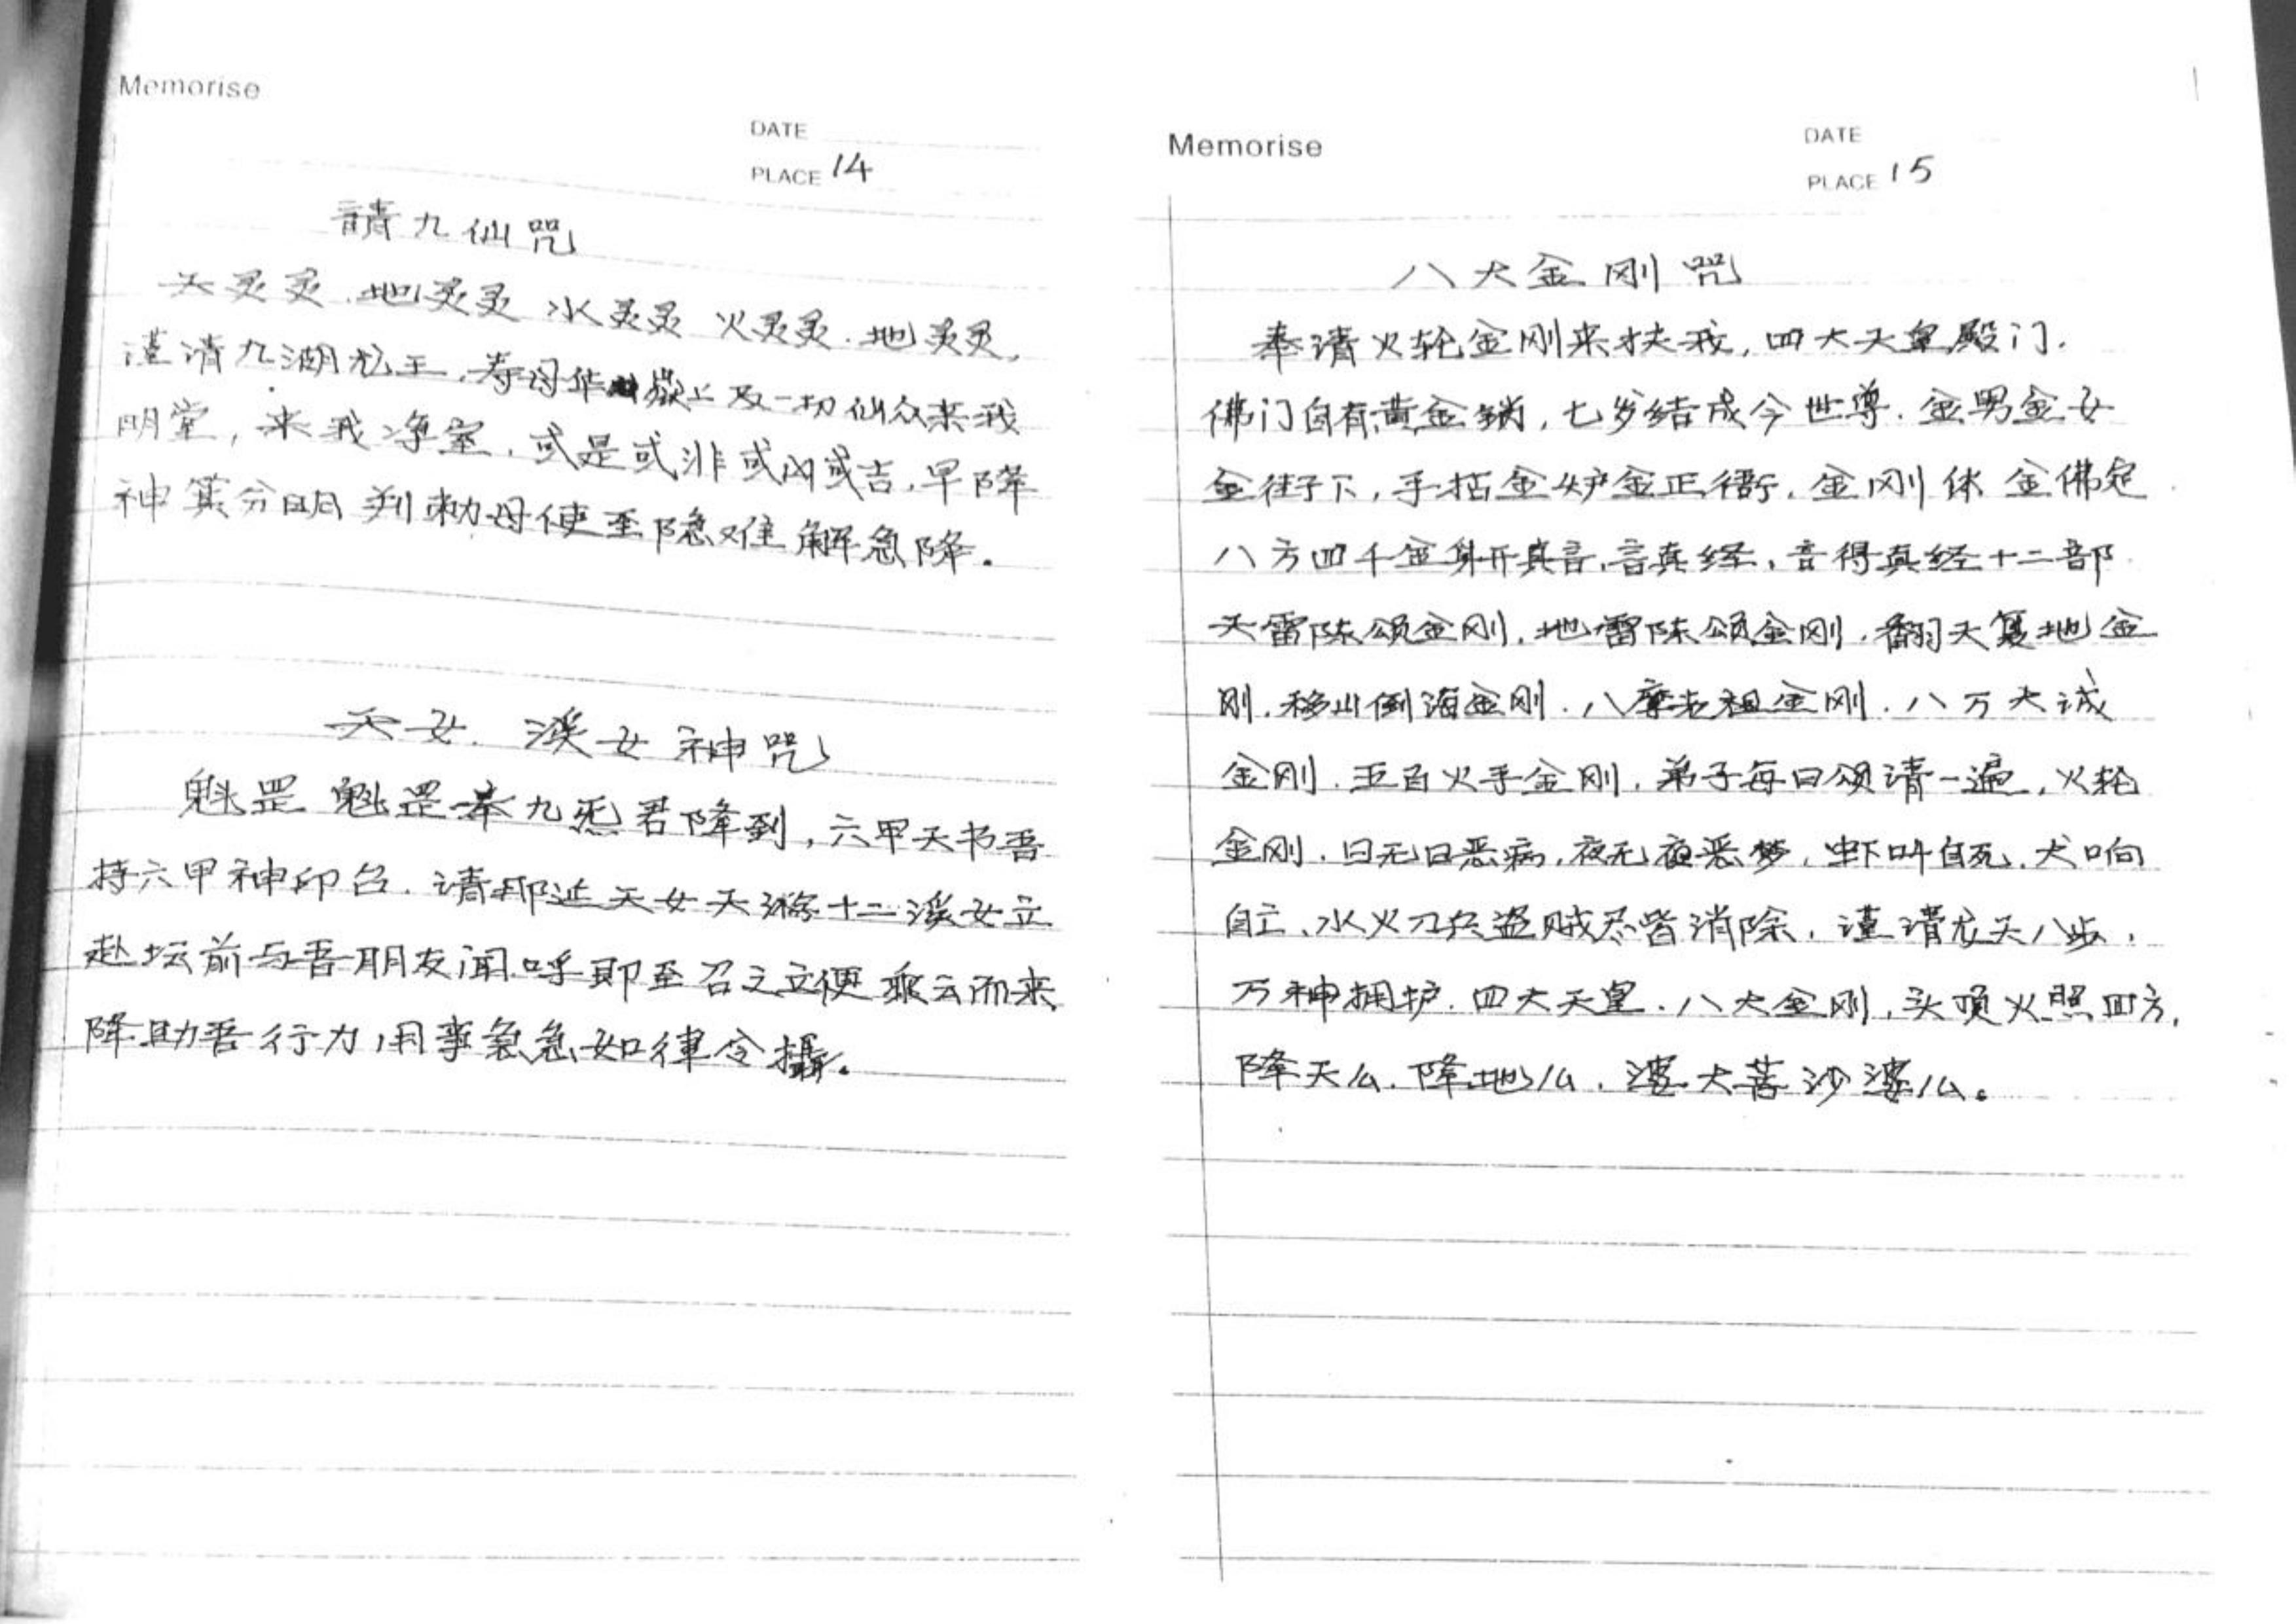 Memorise
DATE
PLACE 14
請九仙咒
天灵灵.地灵灵 水灵灵 火灵灵.地灵灵,
谨请九湖龙王.寿母华嶽上及一切仙众来我
明堂,来我净室.或是或非或凶或吉.早降
神箕分明判勅母使至隐难解急降.
天女.溪女神咒
魁罡魁罡奉九炁君降到,六甲天书吾
持六甲神印台.请那延天女天游十二溪女立
赴坛前与吾朋友闻呼即至召之立便乘云而来
降助吾行力,用事急急如律令攝.
Memorise
DATE
PLACE 15
八大金刚咒
奉请火轮金刚来扶我,四大天皇殿门.
佛门自有黄金锁,七岁结成今世尊.金男金女
金街下,手括金炉金正衙.金刚体 金佛定
八方四千金身开真言.言真经,言得真经十二部
天雷陈颂金刚.地雷陈颂金刚.翻天复地金
刚.移山倒海金刚.八摩老祖金刚.八万大诚
金刚.五百火手金刚.弟子每日颂请一遍,火轮
金刚.日无日恶病,夜无夜恶梦,虾叫自死.犬响
自亡、水火刀兵盗贼尽皆消除.谨请龙天八步,
万神拥护.四大天皇.八大金刚,头顶火照四方,
降天么.降地么.婆大菩沙婆么。